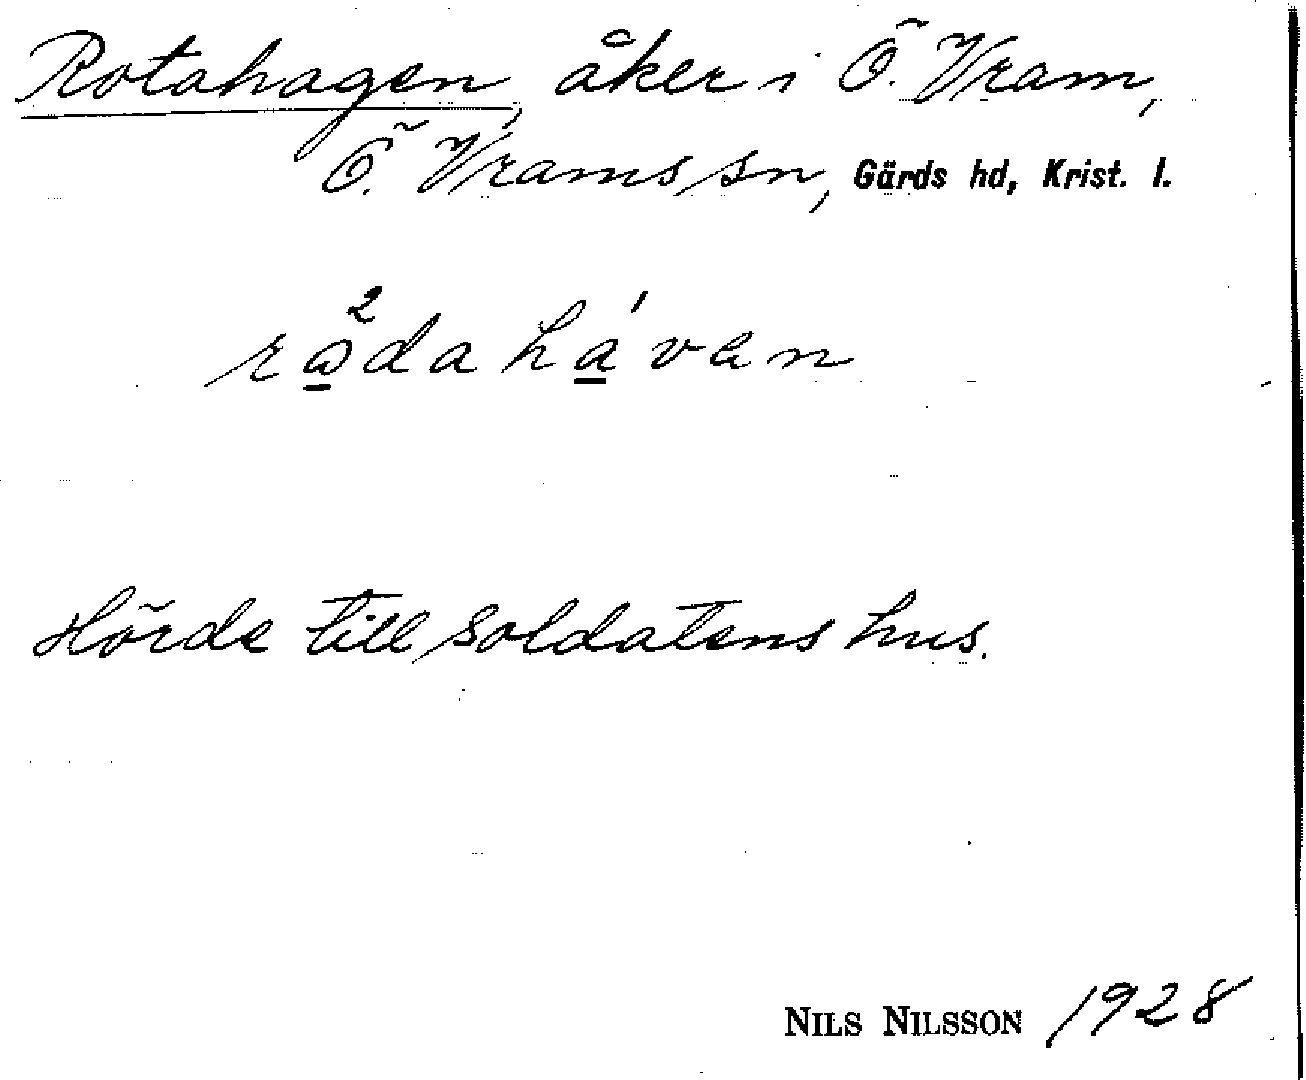 Rotahagen, åker i Ö. Vram,
Ö. Vrams sn, Gärds hd, Krist. l.
rå²da há́van
Hörde till soldatens hus.
NILS NILSSON 1928